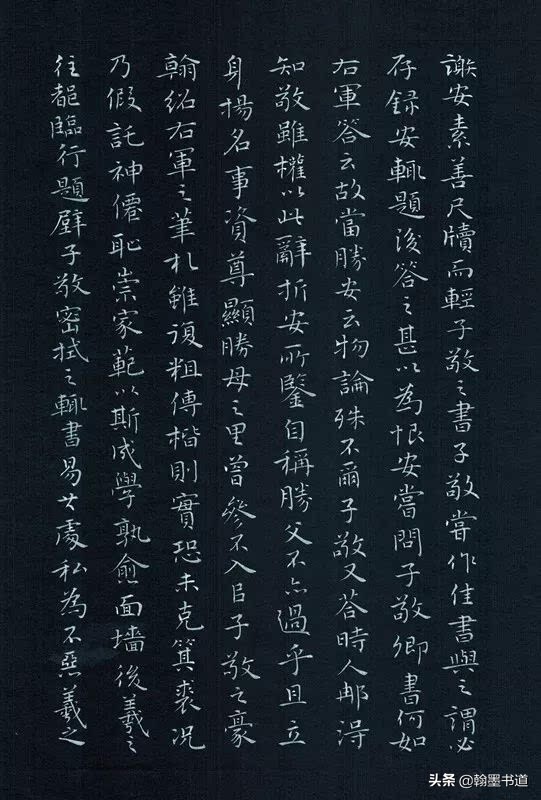 謝安素善尺牘而輕子敬之書子敬嘗作佳書與之謂必
存録安輒題後答之甚以為恨安嘗問子敬卿書何如
右軍答云故當勝安云物論殊不爾子敬又荅時人那得
知敬雖權以此辭折安所鑒自稱勝父不亦過乎且立
身揚名事資尊顯勝母之里曾參不入以子敬之豪
翰紹右軍之筆札雖復粗傳楷則實恐未克箕裘况
乃假託神僊恥崇家範以斯成學孰愈面墻後羲之
往都臨行題壁子敬密拭之輒書易其處私為不惡羲之
头条 @翰墨书道